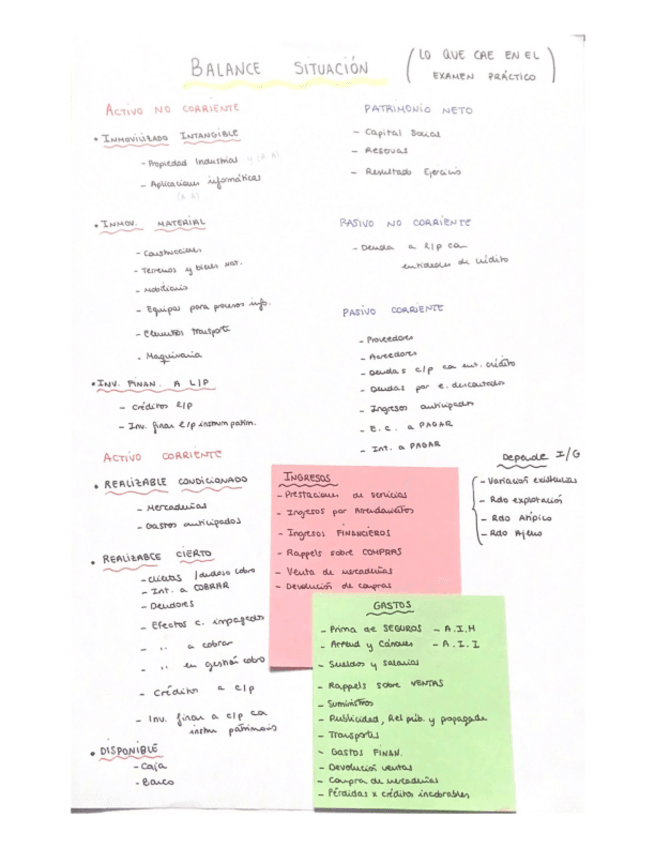 BALANCE SITUACIÓN
(LO QUE CAE EN EL
EXAMEN PRÁCTICO)
ACTIVO NO CORRIENTE
• INMOVILIZADO INTANGIBLE
- Propiedad Industrial y (A A)
- Aplicaciones informáticas
(A A)
• INMOV. MATERIAL
- Construcciones
- Terrenos y bienes nat.
- Mobiliario
- Equipos para procesos info.
- Elementos transporte
- Maquinaria
• INV. FINAN. A L/P
- Créditos l/p
- Inv. finan l/p instrum patrim.
ACTIVO CORRIENTE
• REALIZABLE CONDICIONADO
- Mercaderías
- Gastos anticipados
• REALIZABLE CIERTO
- Clientes /dudoso cobro
- Int. a COBRAR
- Deudores
- Efectos c. impagados
- " a cobrar
- " en gestión cobro
- Créditos a c/p
- Inv. finan a c/p ca
instru patrimonio
• DISPONIBLE
- Caja
- Banco
PATRIMONIO NETO
- Capital Social
- Reservas
- Resultado Ejercicio
PASIVO NO CORRIENTE
- Deuda a l/p con
entidades de crédito
PASIVO CORRIENTE
- Proveedores
- Acreedores
- Deudas c/p con ent. crédito
- Deudas por e. descontados
- Ingresos anticipados
- E.C. a PAGAR
- Int. a PAGAR
Depende I/G
- Variación existencias
- Rdo explotación
- Rdo Atípico
- Rdo Ajeno
INGRESOS
- Prestaciones de servicios
- Ingresos por Arrendamientos
- Ingresos FINANCIEROS
- Rappels sobre COMPRAS
- Venta de mercaderías
- Devolución de compras
GASTOS
- Prima de SEGUROS - A.I.M
- Arrend y Cánones - A.I.I
- Sueldos y salarios
- Rappels sobre VENTAS
- Suministros
- Publicidad, Rel púb. y propagada
- Transportes
- Gastos FINAN.
- Devolución ventas
- Compra de mercaderías
- Pérdidas x créditos incobrables